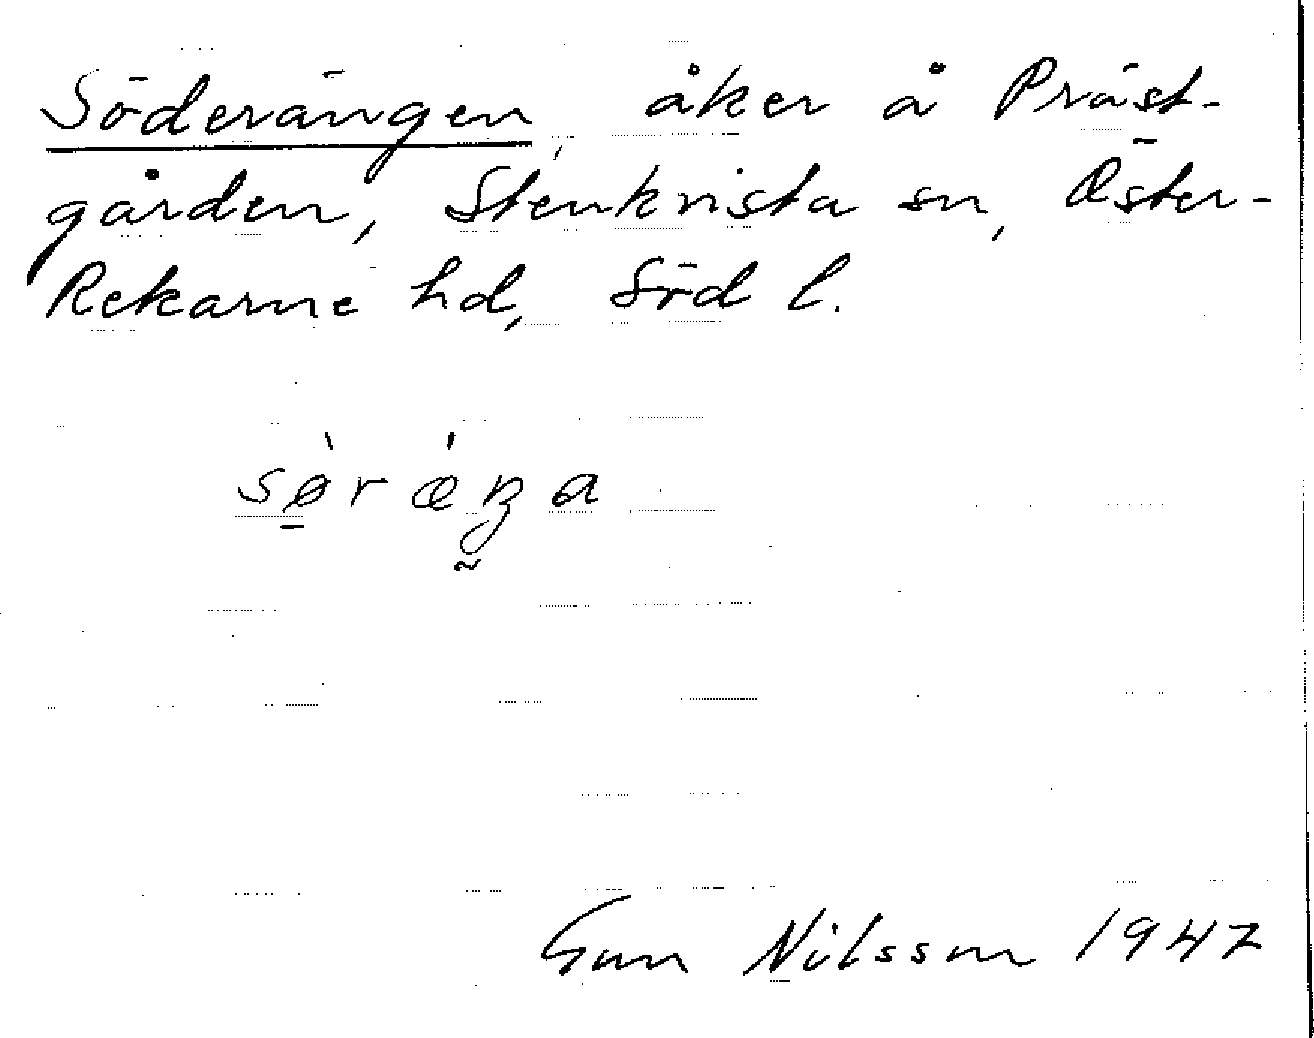 Söderängen, åker å Präst-
gården, Stenkvista sn, Öster-
Rekarne hd, Söd l.
Gun Nilsson 1947